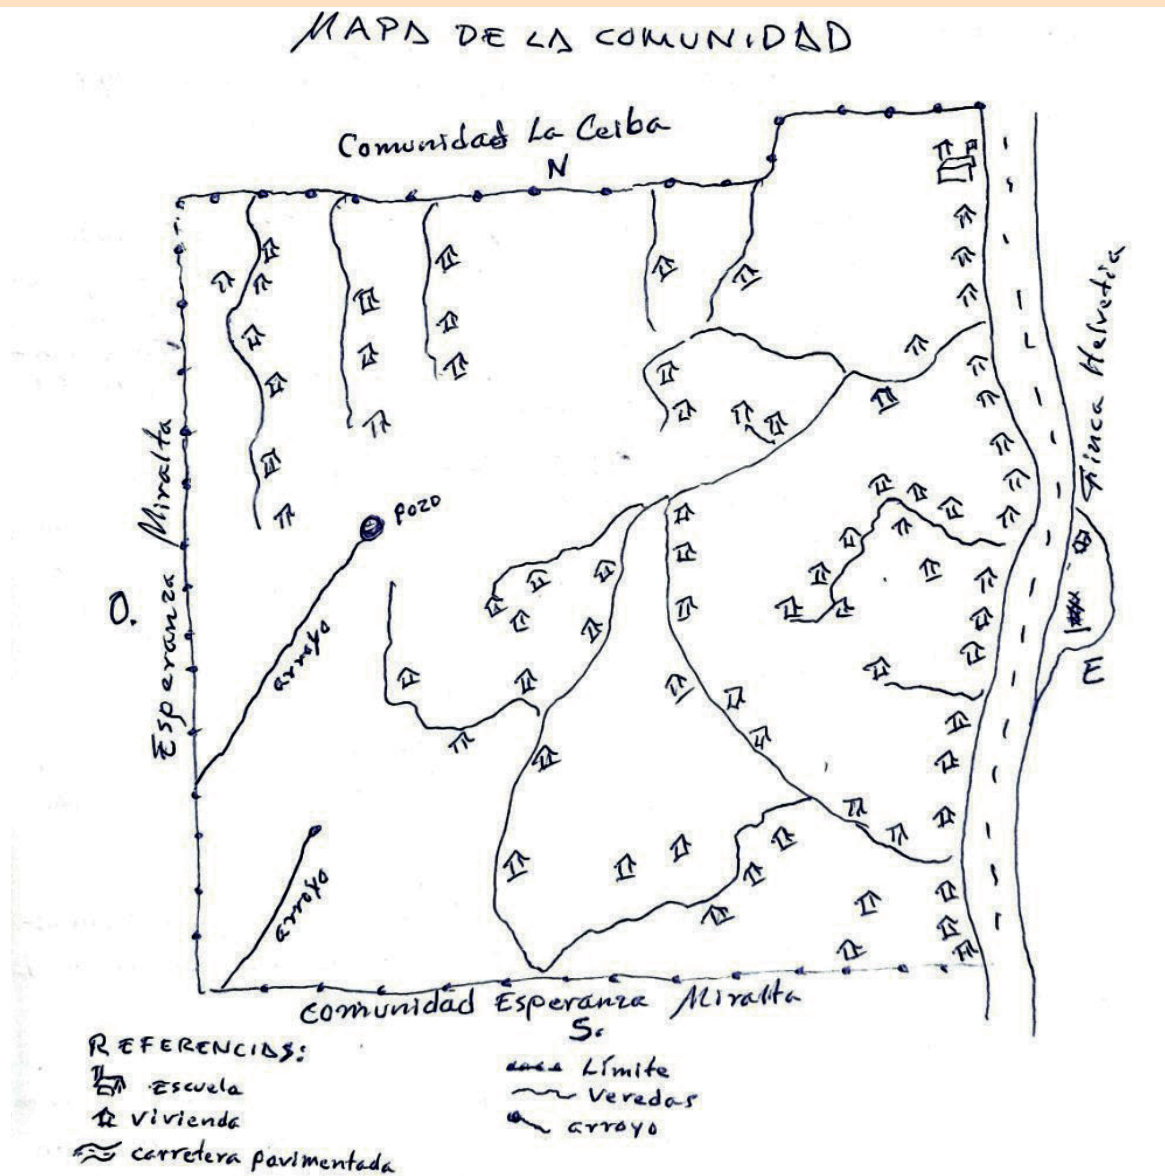 MAPA DE LA COMUNIDAD
Comunidad La Ceiba
N
Finca Helvetia
Esperanza Miralta
O.
Pozo
arroyo
E
arroyo
Comunidad Esperanza Miralta
S.
REFERENCIAS:
Escuela
Vivienda
carretera pavimentada
Límite
Veredas
arroyo